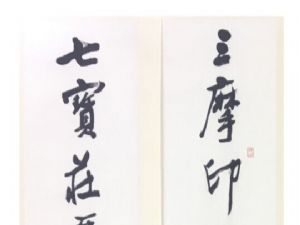 三摩印
七寶莊